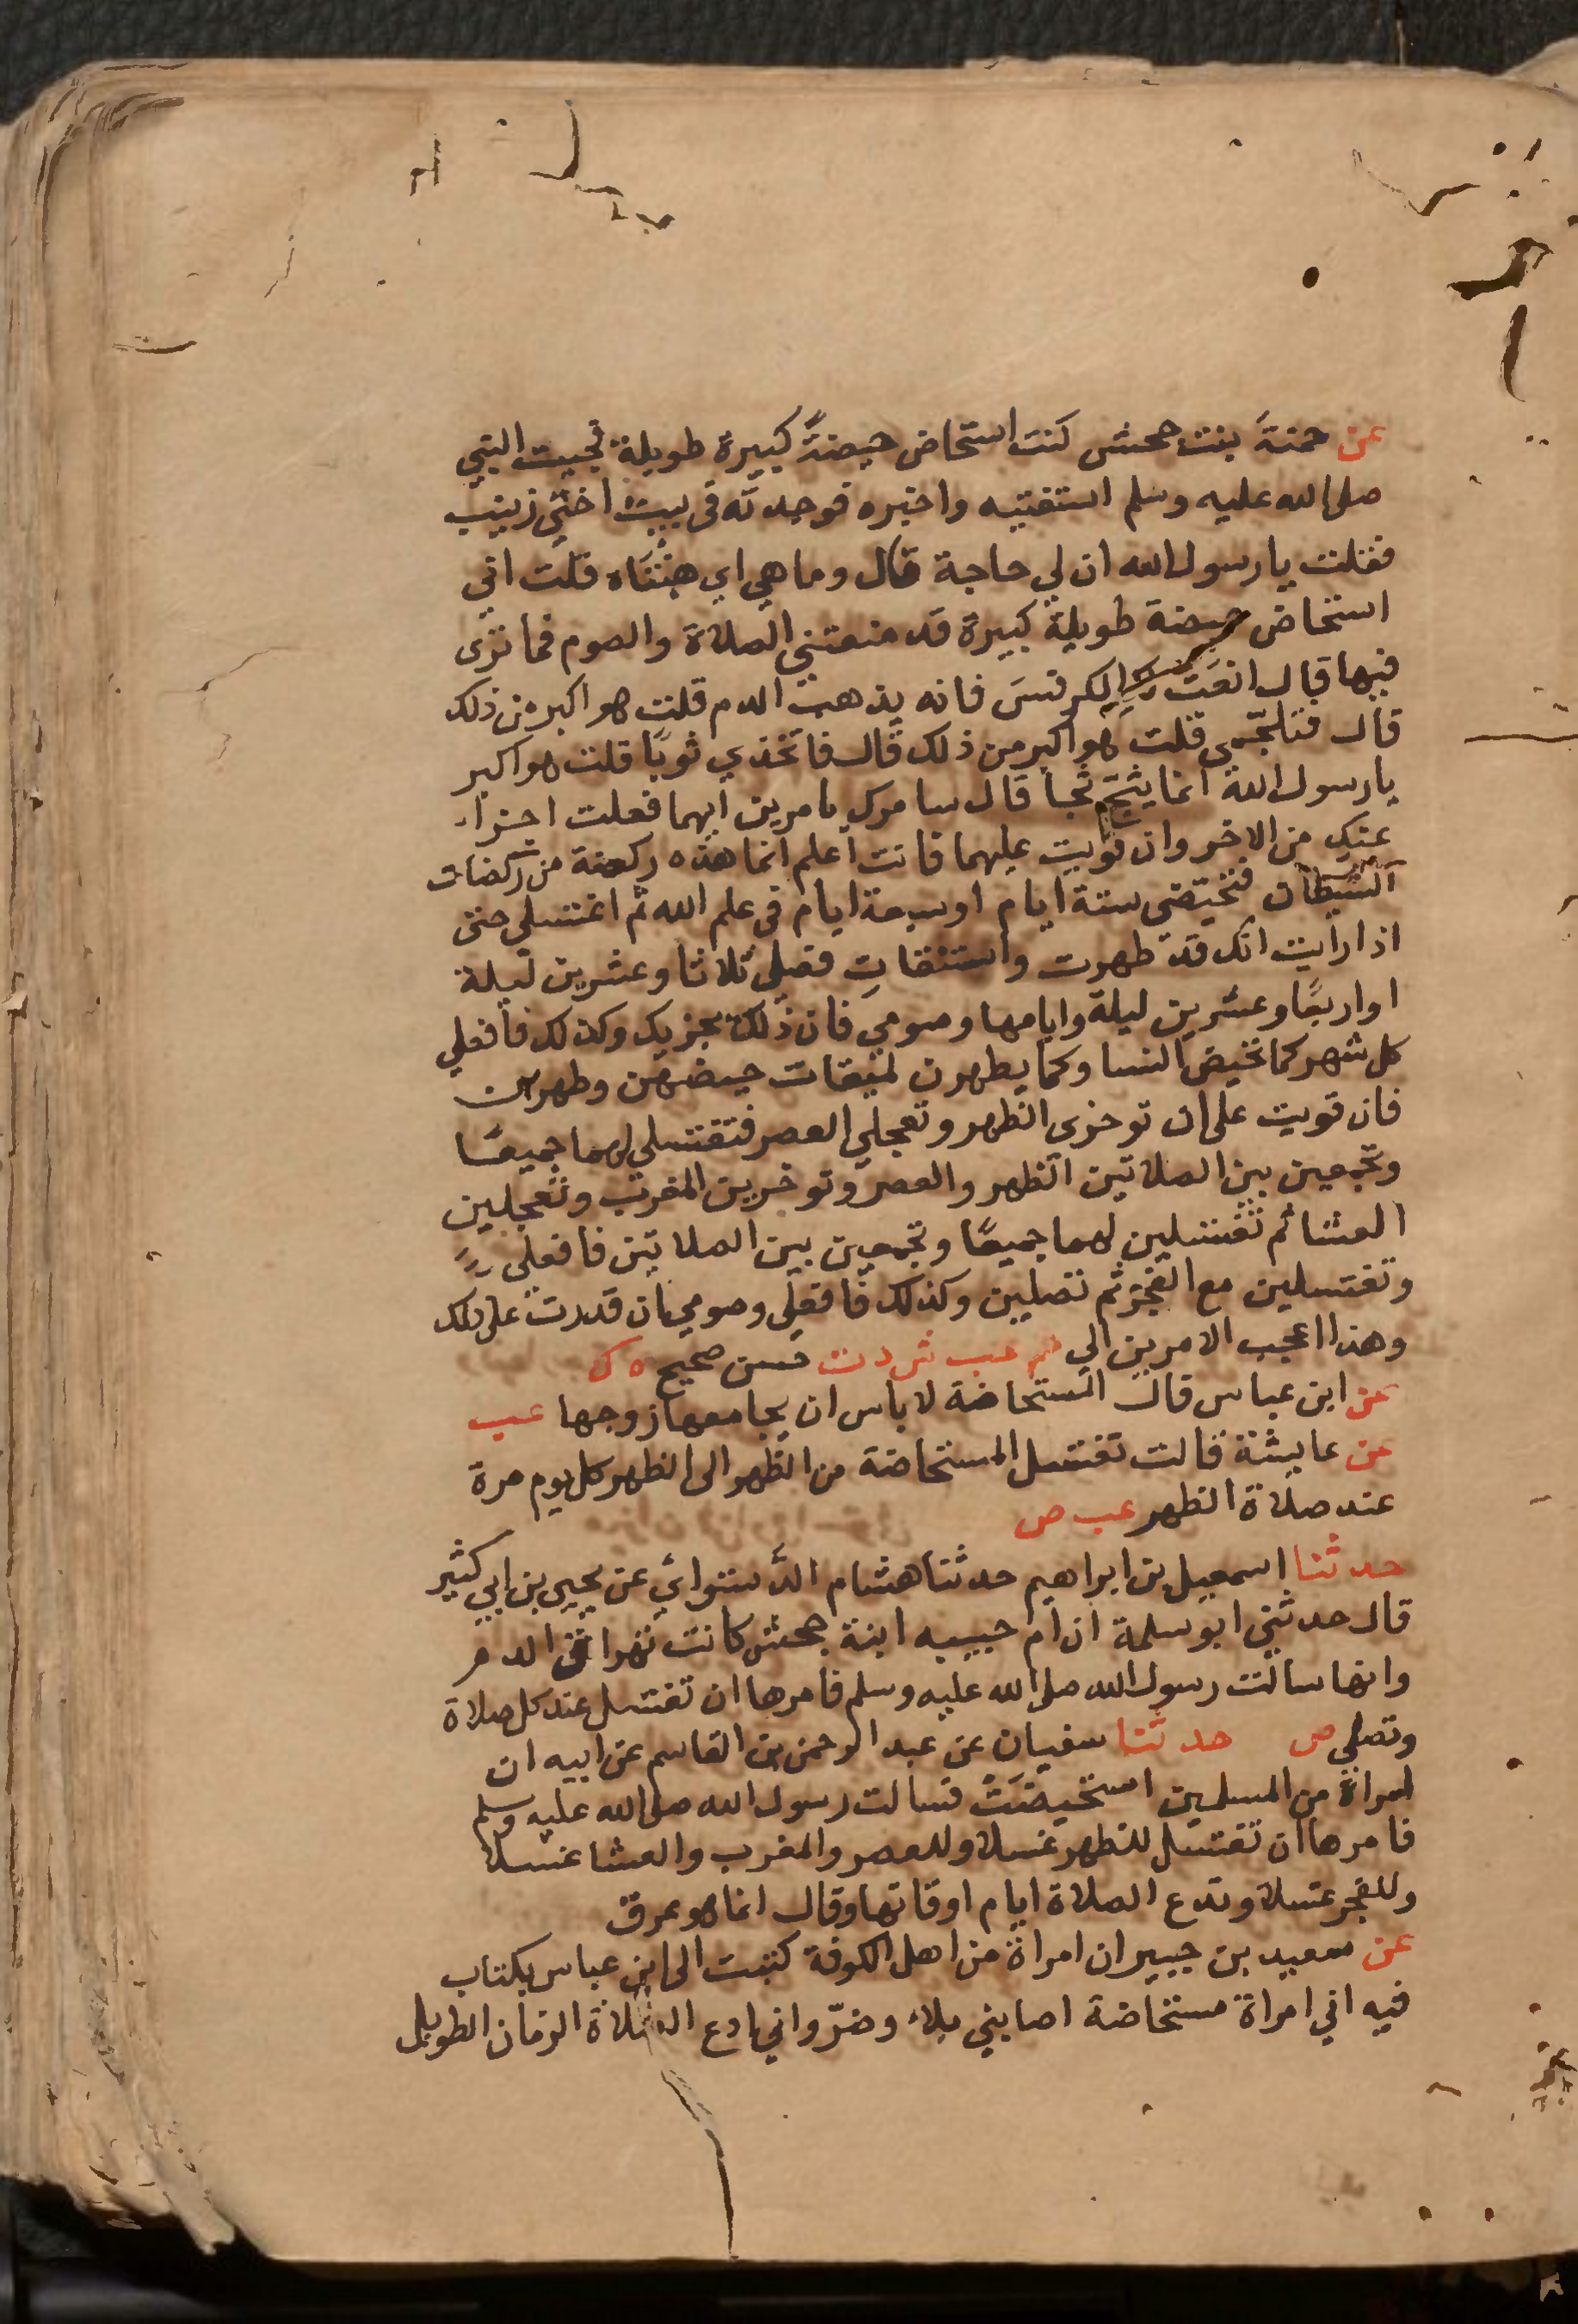 عن حمنة بنت جحش كنت استحاض حيضةً كبيرة طويلة فجيت النبي
صلى الله عليه وسلم استفتيه واخبره فوجدته في بيت اختي زينب
فقلت يا رسول الله ان لي حاجة قال وما هي اي هنتاه قلت اني
استحاض حيضة طويلة كبيرة قد منعتني الصلاة والصوم فما ترى
فيها قال انعت لك الكرفس فانه يذهب الدم قلت هو اكبر من ذلك
قال فتلجمي قلت هو اكبر من ذلك قال فاتخذي ثوبا قلت هو اكبر
يا رسول الله انما يثج ثجا قال سامرك بامرين ايهما فعلت اجزا
عنك من الاخر وان قويت عليهما فانت اعلم انما هذه ركضة من ركضات
الشيطان فتحيضي ستة ايام او سبعة ايام في علم الله ثم اغتسلي حتى
اذا رايت انك قد طهرت واستنقات فصلي ثلاثا وعشرين ليلة
او اربعًا وعشرين ليلة وايامها وصومي فان ذلك يجزيك وكذلك فافعلي
كل شهر كما تحيض النسا وكما يطهرن لميقات حيضهن وطهرهن
فان قويت على ان توخري الظهر وتعجلي العصر فتغتسلي لهما جميعًا
وتجمعين بين الصلاتين الظهر والعصر وتوخرين المغرب وتعجلين
العشا ثم تغتسلين لهما جميعًا وتجمعين بين الصلاتين فافعلي
وتغتسلين مع الفجر ثم تصلين وكذلك فافعلي وصومي ان قدرت على ذلك
وهذا اعجب الامرين الي حم عب ش د ت حسن صحيح ه ك
عن ابن عباس قال المستحاضة لا باس ان يجامعها زوجها عب
عن عايشة قالت تغتسل المستحاضة من الظهر الى الظهر كل يوم مرة
عند صلاة الظهر عب ص
حدثنا اسمعيل بن ابراهيم حدثنا هشام الدستوائي عن يحيى بن ابي كثير
قال حدثني ابو سلمة ان ام حبيبه ابنة جحش كانت تهراق الدم
وانها سالت رسول الله صلى الله عليه وسلم فامرها ان تغتسل عند كل صلاة
وتصلي ص حدثنا سفيان عن عبد الرحمن بن القاسم عن ابيه ان
امراة من المسلمين استحيضت فسالت رسول الله صلى الله عليه وسلم
فامرها ان تغتسل للظهر غسلا وللعصر والمغرب والعشا غسلا
وللفجر غسلا وتدع الصلاة ايام اوقاتها وقال انما هو عرق
عن سعيد بن جبير ان امراة من اهل الكوفة كتبت الى ابن عباس بكتاب
فيه اني امراة مستحاضة اصابني بلاء وضرّ واني ادع الصلاة الزمان الطويل